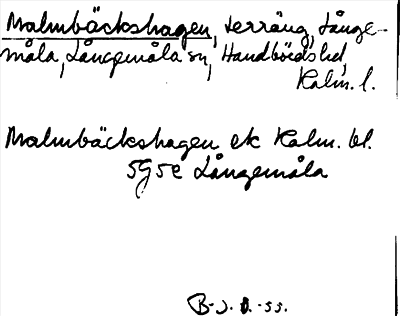 Malmbäckshagen, terräng, Långe-
måla, Långemåla sn, Handbörds hd,
Kalm. l.
Malmbäckshagen ek Kalm. bl.
5G5e Långemåla
B-J. B.-55.